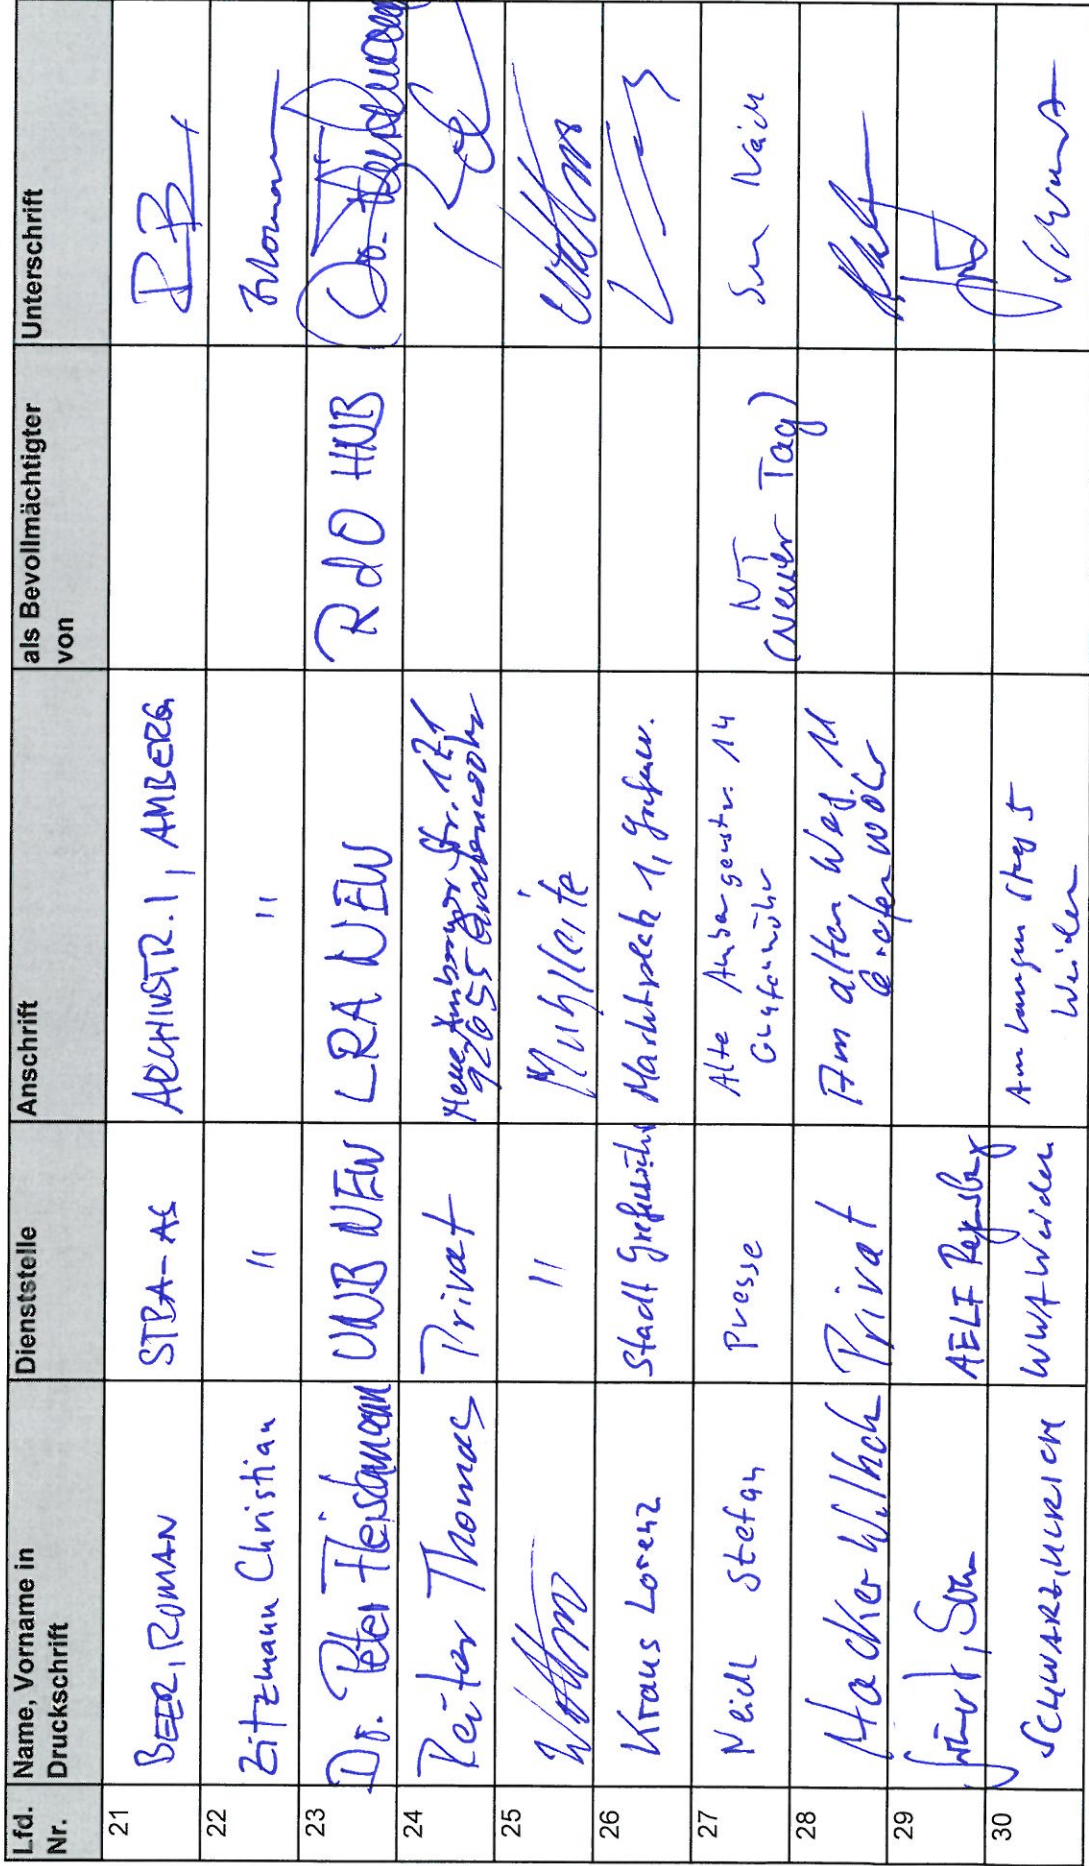 Lfd. Nr. Name, Vorname in Druckschrift Dienststelle Anschrift als Bevollmächtigter von Unterschrift
21 BEER, ROMAN STBA-AS ARCHIVSTR. 1, AMBERG
22 Zitzmann Christian " "
23 Dr. Peter Fleischmann UNB NEW LRA NEW RdO HNB
24 Reiter Thomas Privat Neue Amberger Str. 121
92655 Grafenwöhr
25 " Mühlleite
26 Kraus Lorenz Stadt Grafenwöhr Marktplatz 1, Grafenw.
27 Neidl Stefan Presse Alte Ambergerstr. 14 NT
Grafenwöhr (Neuer Tag)
28 Hacker Privat Am alten Weg 11
Grafenwöhr
29 AELF
30 SCHWARZ, ULRICH WWA Weiden Am Langen Steg 5 Schwarz
Weiden